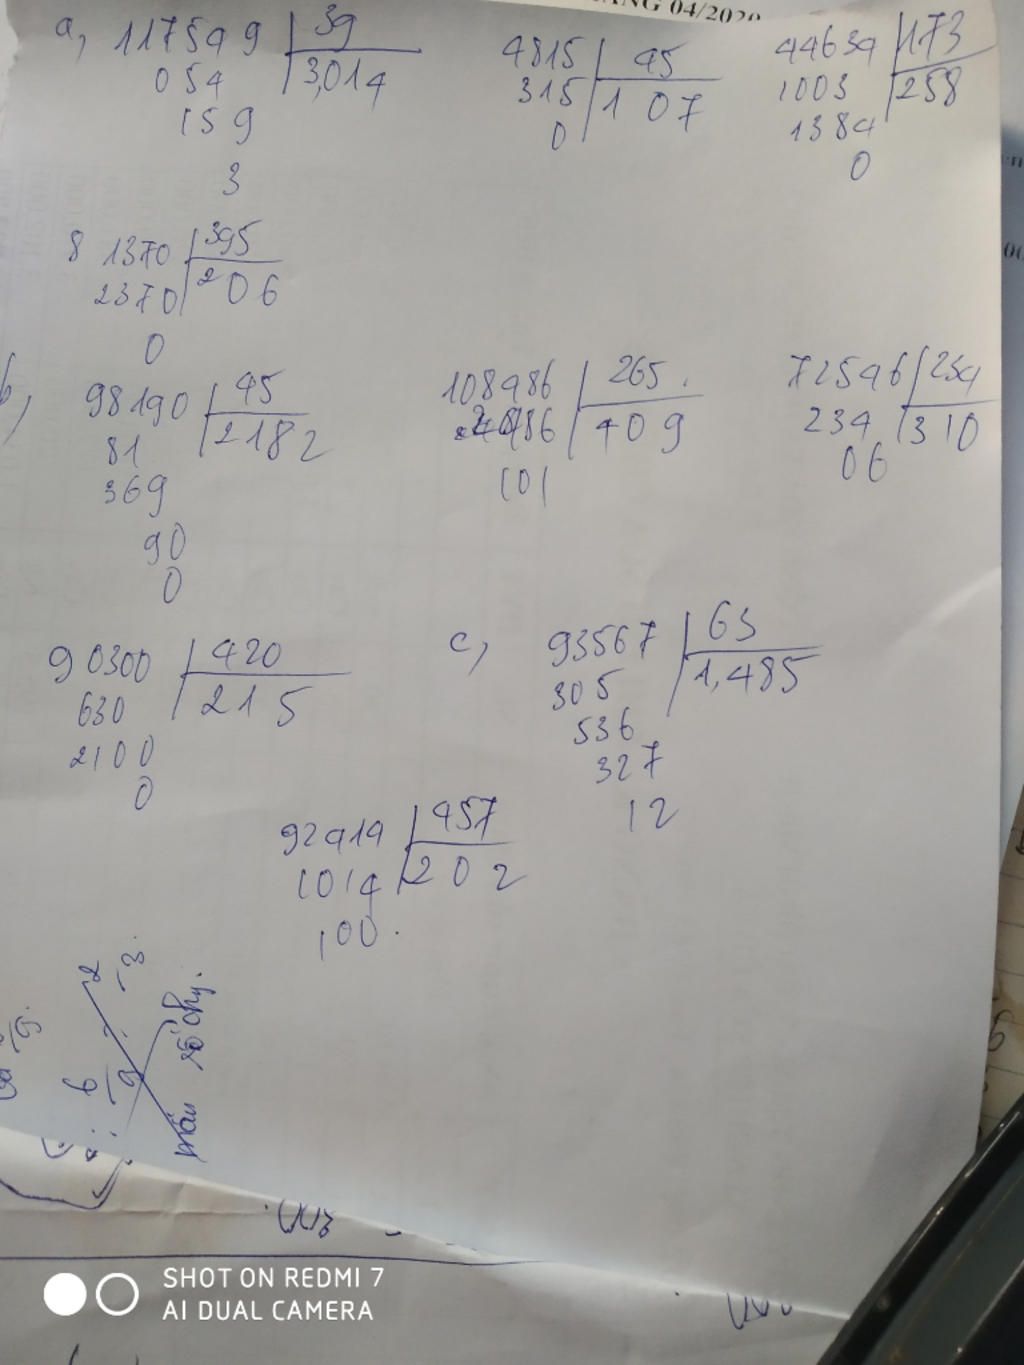 ANG 04/2020
a, 117549 39
054 3,014
159
3
4815 45
315 1 07
0
44634 173
1003 258
1384
0
81370 395
2370 206
0
b,
98190 45
81 2182
369
90
0
108486 265
2486 409
101
72546 234
234 310
06
90300 420
630 215
2100
0
c, 93567 63
305 1,485
536
327
12
92414 457
1014 202
100.
SHOT ON REDMI 7
AI DUAL CAMERA